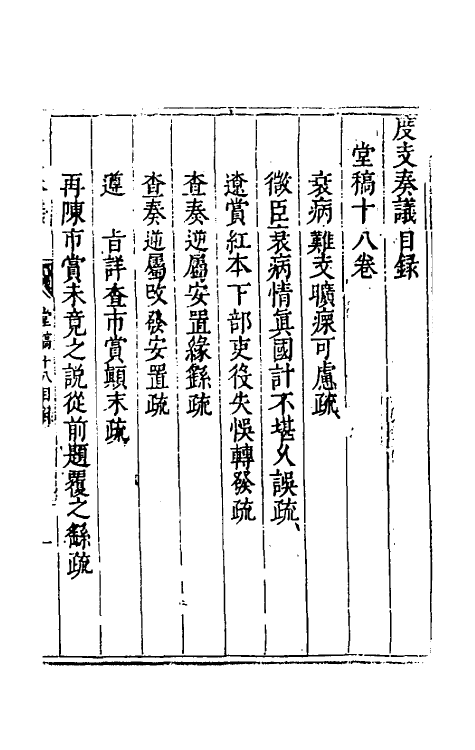 度支奏議目録
堂稿十八卷
衰病難支曠瘝可慮疏
微臣衰病情真國計不堪久誤疏
遼賞紅本下部吏役失悞轉發疏
查奏逆屬安置緣繇疏
查奏逆屬改發安置疏
遵 旨詳查市賞顛末疏
再陳市賞未竟之說從前題覆之繇疏
堂稿十八目録
一